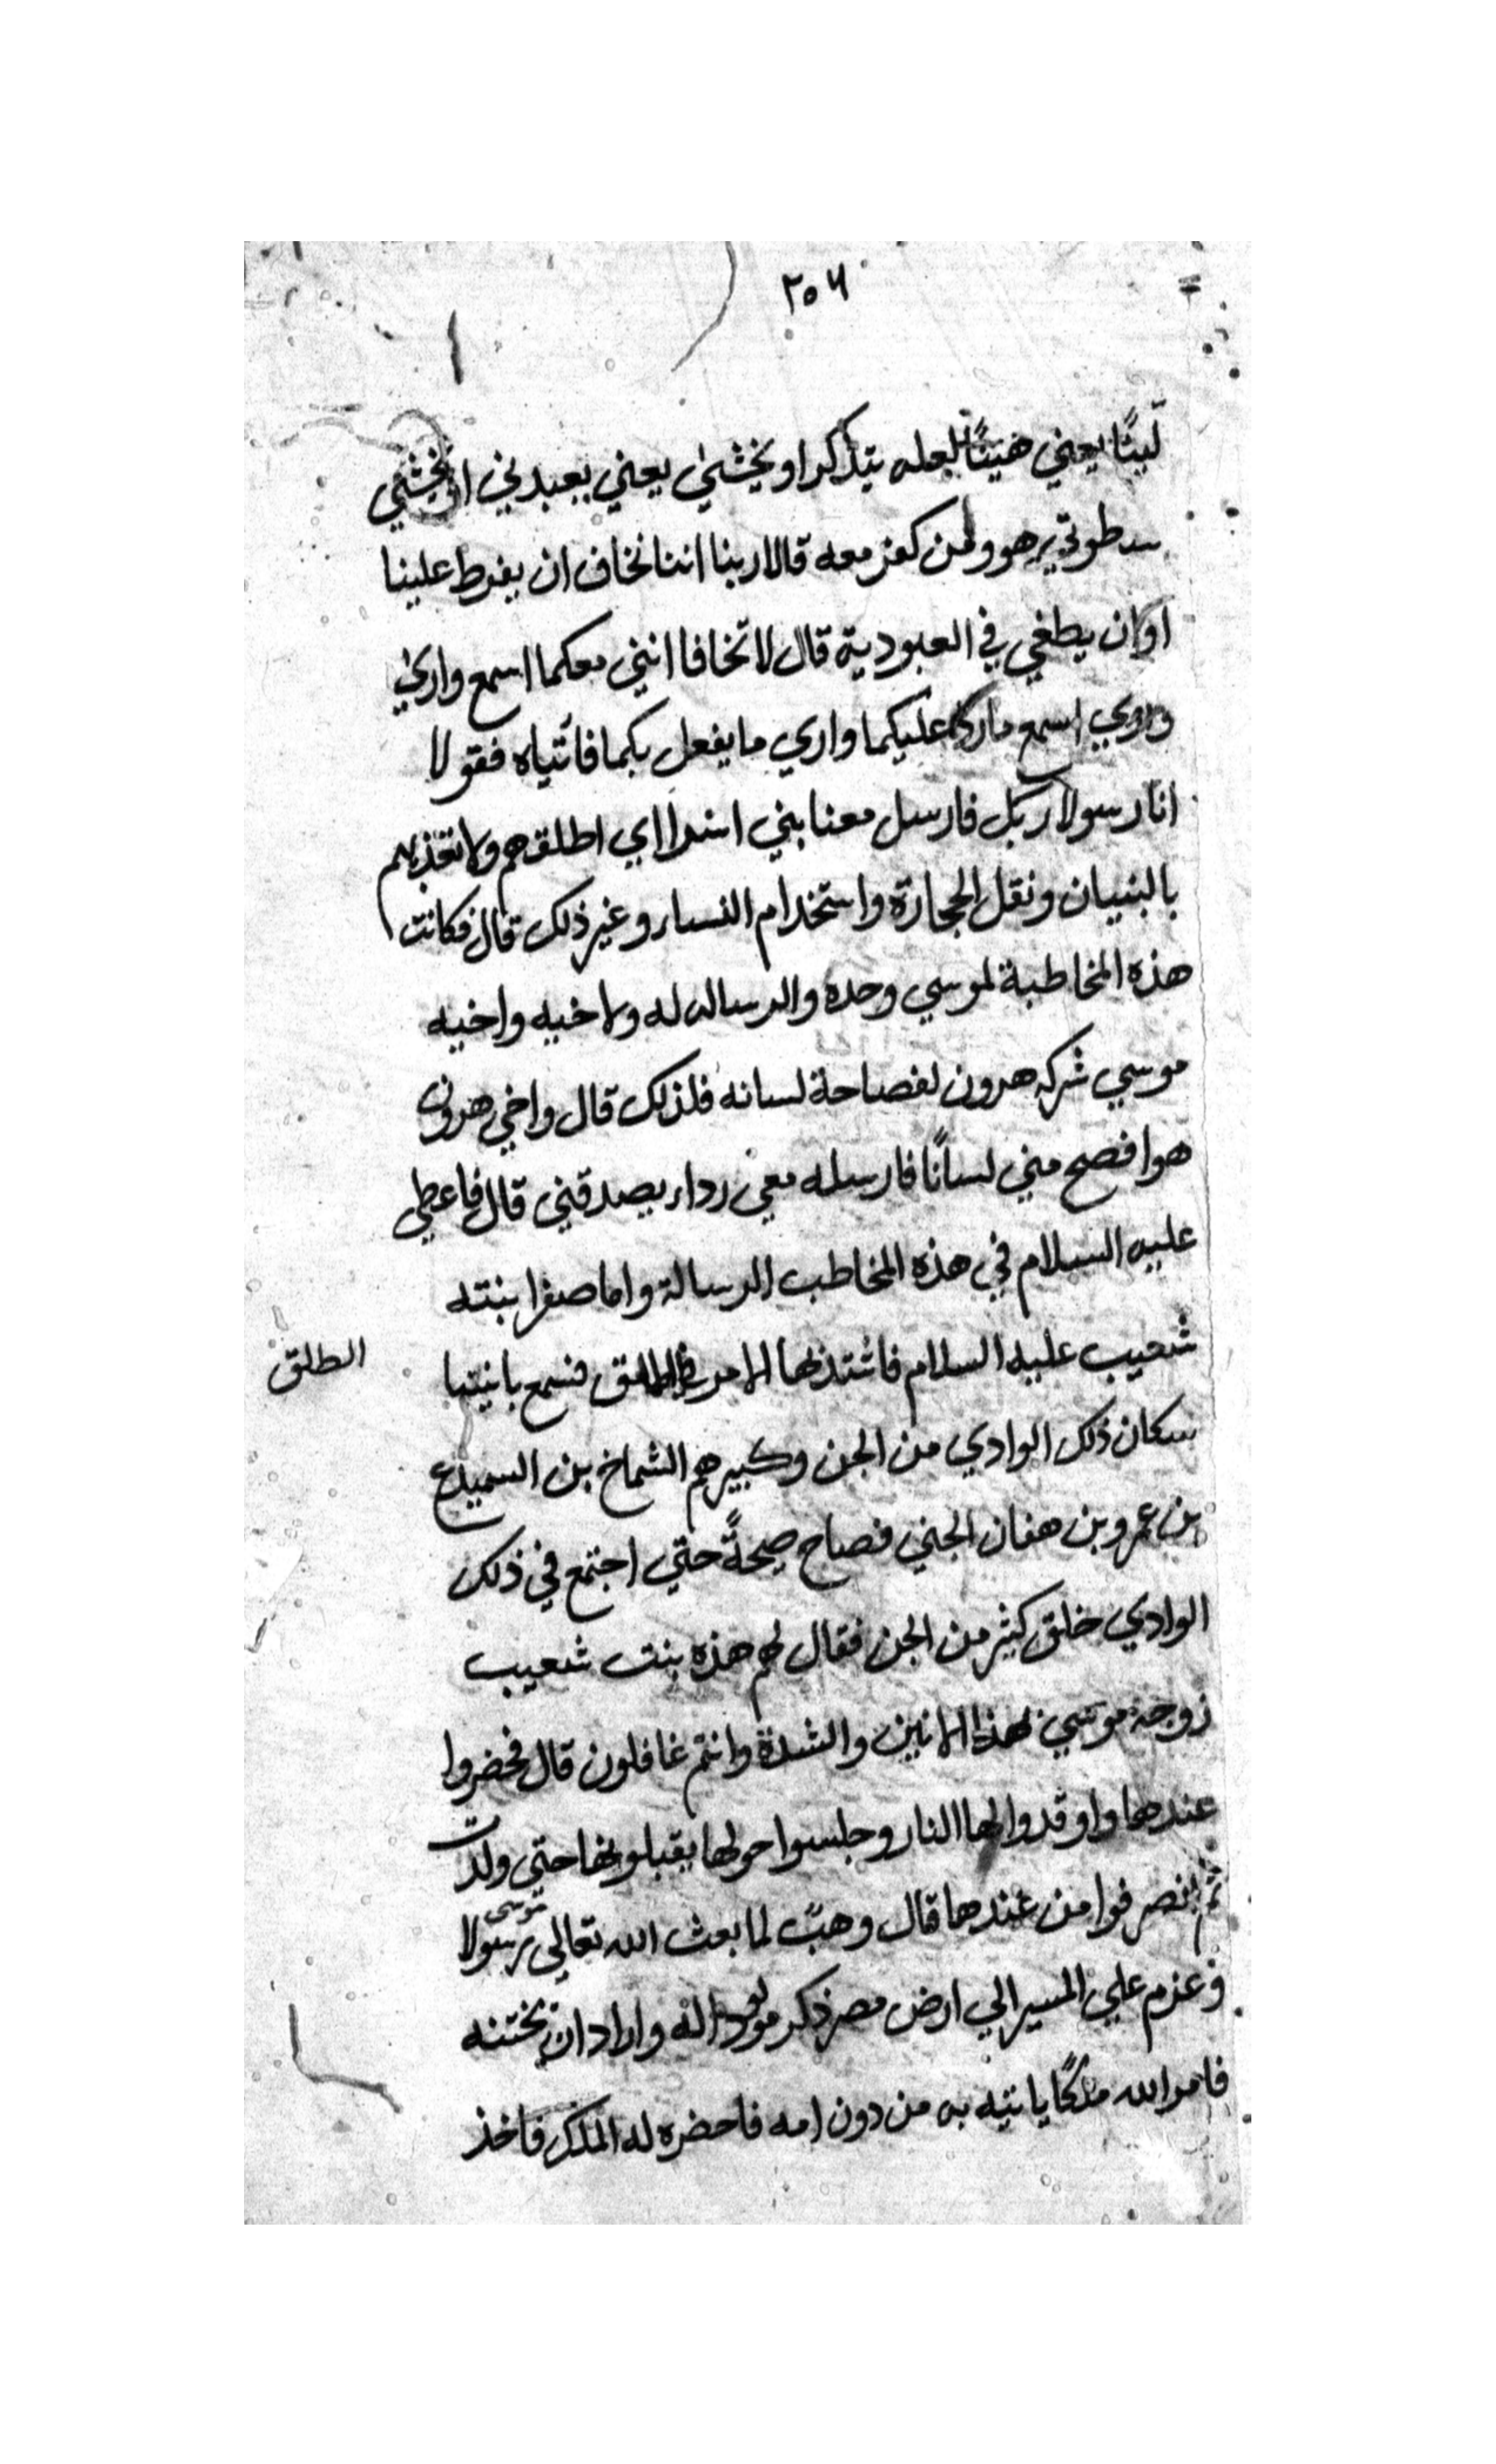 ٢٥٦
لينًا يعني هينًا لعله يتذكر او يخشى يعني يعبدني او يخشي
سطوتي هو ومن كفر معه قالا ربنا اننا نخاف ان يفرط علينا
او ان يطغي في العبودية قال لا تخافا انني معكما اسمع واري
وروي اسمع ما رد عليكما واري ما يفعل بكما فأتياه فقولا
انا رسولا ربك فارسل معنا بني اسرا اي اطلقهم ولا تعذبهم
بالبنيان ونقل الحجارة واستخدام النساء وغير ذلك قال فكانت
هذه المخاطبة لموسي وحده والرساله له ولاخيه واخيه
موسي شركه هرون لفصاحة لسانه فلذلك قال واخي هرون
هو افصح مني لسانًا فارسله معي رداء يصدقني قال فاعطي
عليه السلام في هذه المخاطب الرسالة واما صفرا بنته
شعيب عليه السلام فاشتد بها الامر فسمع بانينها
الطلق
سكان ذلك الوادي من الجن وكبيرهم الشماخ بن السميدع
بن عمرو بن هفان الجني فصاح صيحةً حتي اجتمع في ذلك
الوادي خلق كثير من الجن فقال لهم هذه بنت شعيب
زوجة موسي لهذا الانين والشدة وانتم غافلون قال فحضروا
عندها واوقدوا لها النار وجلسوا حولها يقبلونها حتي ولدت
ثم انصرفوا من عندها قال وهب لما بعث الله تعالي موسى رسولا
وعزم علي المسير الي ارض مصر ذكر مولود اله واراد ان يختنه
فامر الله ملكًا ياتيه به من دون امه فاحضره له الملك فاخذ